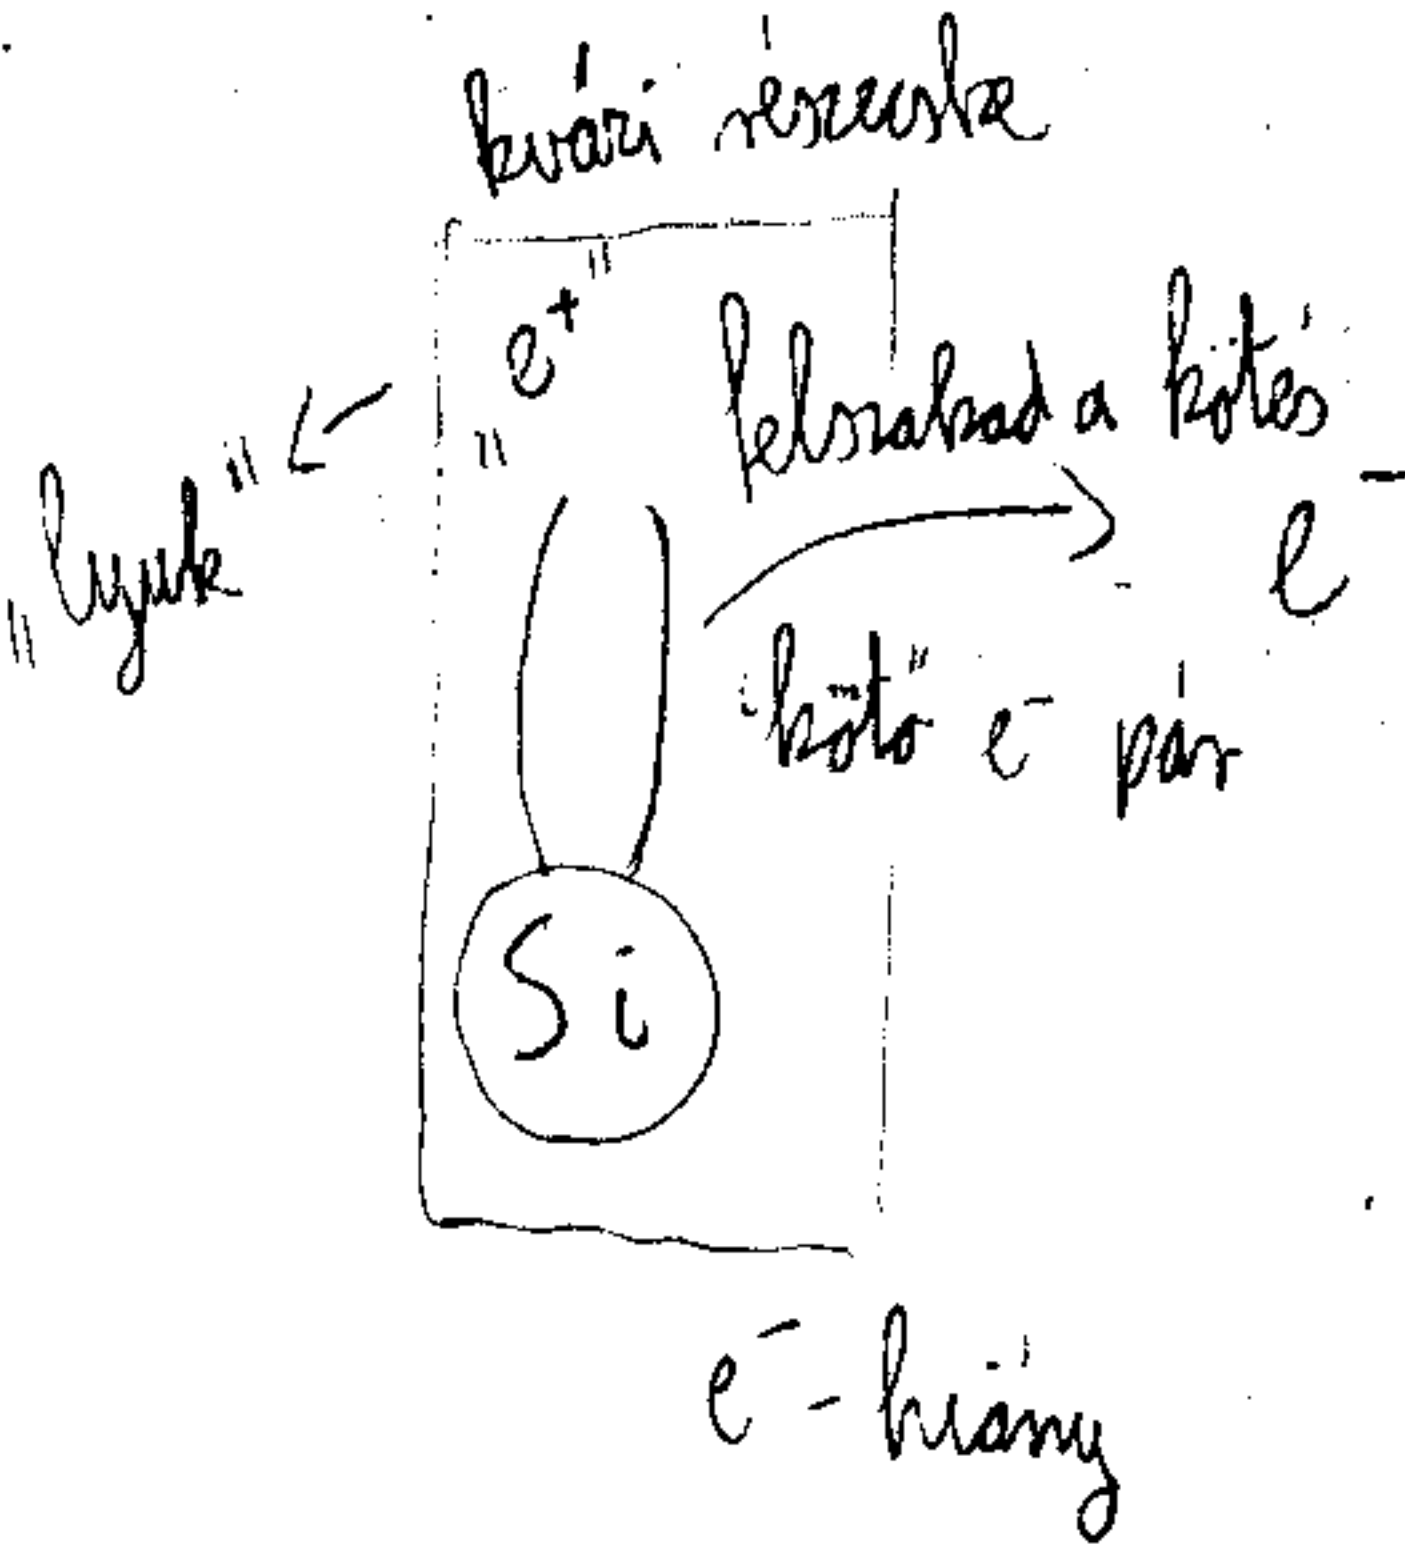 kvázi részecske
„e⁺”
felszakad a kötés
„lyuk”
e⁻
kötő e⁻ pár
Si
e⁻-hiány